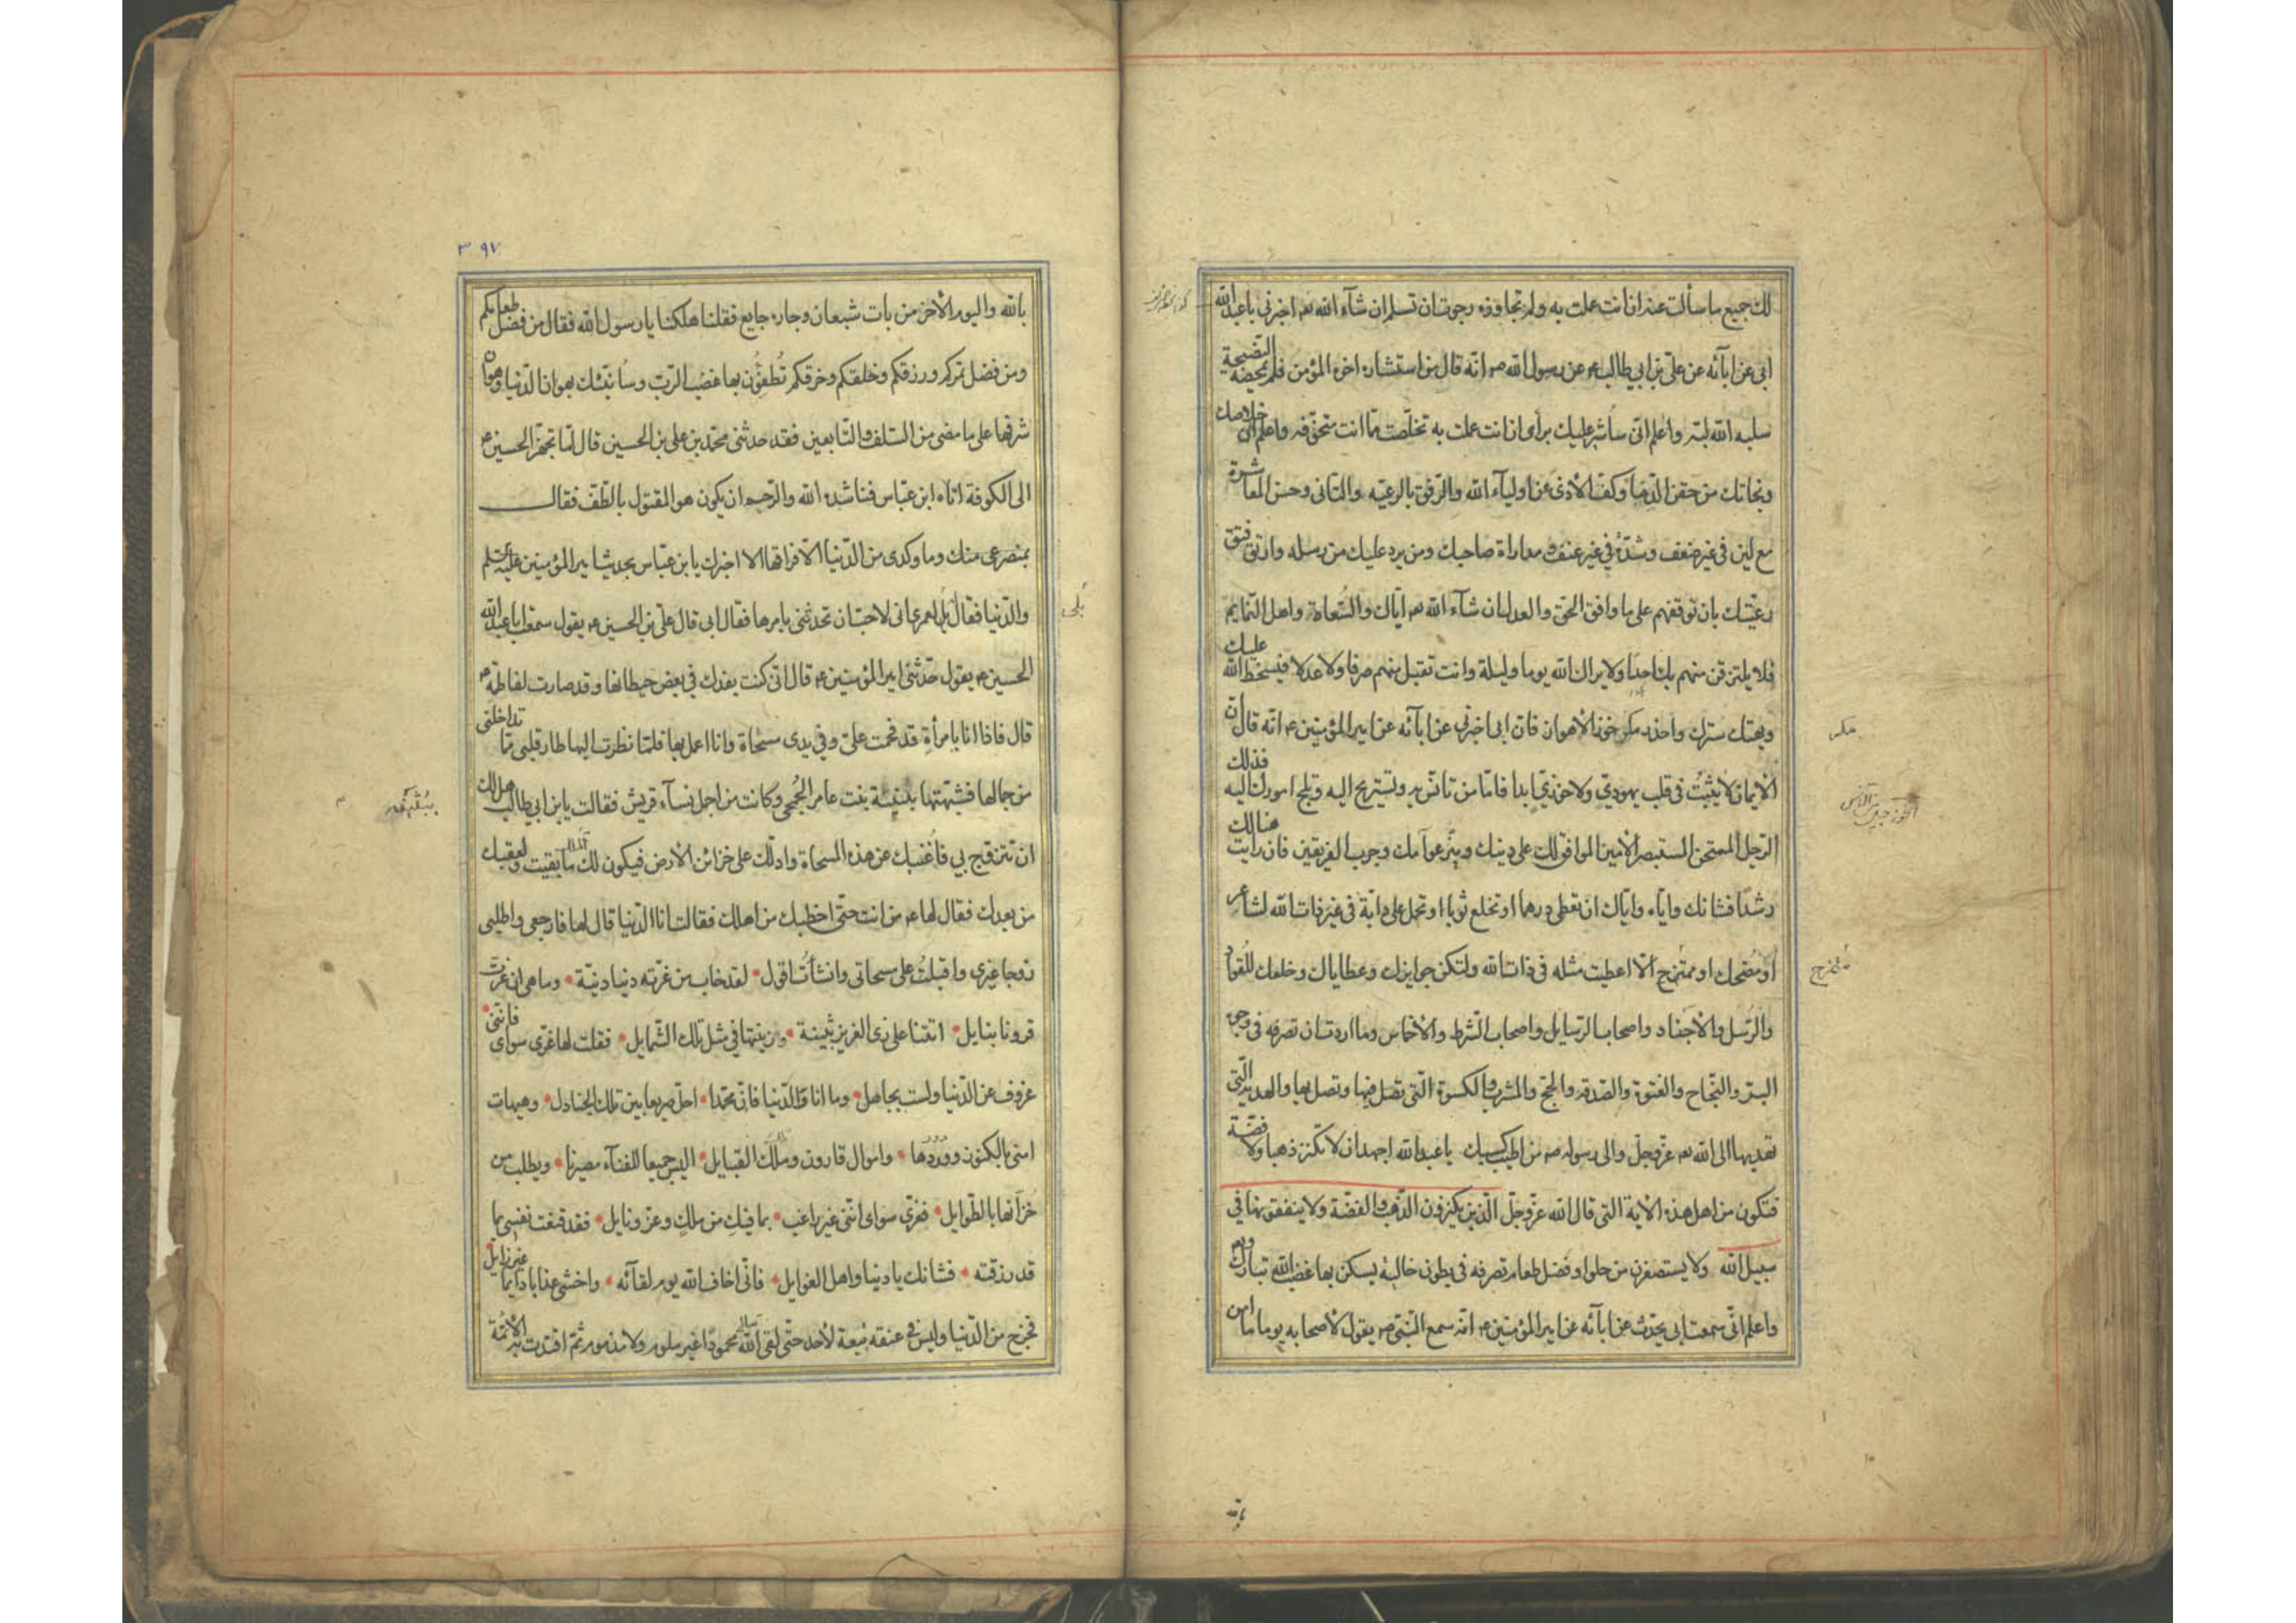 لك جميع ما سألت عنه ان انت عملت به ولم تجاوزه رجوت ان تسلم ان شآء الله تع اخبرنى يا عبد الله
ابى عن ابآئه عن على بن ابي طالب ع عن رسول الله ص انه قال من استشاره اخوه المؤمن فلم يمحضه النصيحة
سلبه الله لبه واعلم انى سأشير عليك برأى ان انت عملت به تخلصت مما انت متخوفه واعلم ان خلاصك
ونجاتك من حقن الدماء وكف الأذى عن اوليآء الله والرفق بالرعيه والتانى وحسن المعاشرة
مع لين فى غير ضعف وشدة في غير عنف ومداراة صاحبك ومن يرد عليك من رسله وارتق فتق
رعيتك بان توقفهم على ما وافق الحق والعدل ان شآء الله تع اياك والسعاة واهل النمايم
فلا يلتزقن منهم بك احد ولا يراك الله يوما وليلة وانت تقبل منهم صرفا ولا عدلا فيسخط الله عليك
ويهتك سترك واحذر مكر خوز الاهواز فان ابى اخبرنى عن ابآئه عن امير المؤمنين ع انه قال ان
الايمان لا يثبت فى قلب يهودي ولا خوزي ابدا فاما من تانس به وتستريح اليه وتلج امورك اليه فذلك
الرجل الممتحن المستبصر الامين الموافق لك على دينك وميز عوآمك وجرب الفريقين فان رايت هنالك
رشدا فشانك واياه واياك ان تعطى درهما او تخلع ثوبا او تحمل على دابة فى غير ذات الله لشاعر
او مضحك او ممتزح الا اعطيت مثله فى ذات الله ولتكن جوايزك وعطاياك وخلعك للقواد
والرسل والاجناد واصحاب الرسايل واصحاب الشرط والاخماس وما اردت ان تصرفه فى وجوه
البر والنجاح والفتوة والصدقه والحج والمشرب والكسوة التى تصلى فيها وتصل بها والهديه التى
تهديها الى الله تع عز وجل والى رسوله ص من اطيب كسبك يا عبد الله اجهد ان لا تكنز ذهبا ولا فضة
فتكون من اهل هذه الاية التى قال الله عز وجل الذين يكنزون الذهب والفضة ولا ينفقونها فى
سبيل الله ولا يستصغرن من حلو او فضل طعام تصرفه فى بطون خالية يسكن بها غضب الله تبارك وتع
واعلم انى سمعت ابى يحدث عن ابآئه عن امير المؤمنين ع انه سمع النبى ص يقول لأصحابه يوما ما امن
مكر
ممتزح
۳۹۷
بالله واليوم الاخر من بات شبعان وجاره جايع فقلنا هلكنا يا رسول الله فقال من فضل طعامكم
ومن فضل تمركم ورزقكم وخلقكم وخرقكم تطفؤن بها غضب الرب وسأنبئك بهوان الدنيا وهوان
شرفها على ما مضى من السلف والتابعين فقد حدثنى محمد بن على بن الحسين قال لما تجهز الحسين ع
الى الكوفة اتاه ابن عباس فناشده الله والرحم ان يكون هو المقتول بالطف فقال
بمصرعى منك وما وكدى من الدنيا الا فراقها الا اخبرك يا بن عباس بحديث امير المؤمنين عليه السلم
والدنيا فقال بلى لعمرى انى لاحب ان تحدثنى بامرها فقال ابى قال على بن الحسين ع يقول سمعت ابا عبد الله
الحسين ع يقول حدثنى امير المؤمنين ع قال انى كنت بفدك في بعض حيطانها وقد صارت لفاطمة ع
قال فاذا انا بامرأة قد قحمت على وفي يدى مسحاة وانا اعمل بها فلما نظرت اليها طار قلبى مما تداخلنى
من جمالها فشبهتها ببثينة بنت عامر الجمحى وكانت من اجمل نسآء قريش فقالت يا بن ابى طالب هل لك
ان تتزوج بي فأغنيك عن هذه المسحاة وادلك على خزائن الارض فيكون لك ما بقيت ولعقبك
من بعدك فقال لها ع من انت حتى اخطبك من اهلك فقالت انا الدنيا قال لها فارجعى واطلبى
زوجا غيرى واقبلت على مسحاتى وانشأت اقول لقد خاب من غرته دنيا دنية وما هى ان غرت
قرونا بنايل اتتنا على زى العزيز بثينة وزينتها في مثل تلك الشمايل فقلت لها غرى سواى فاننى
عزوف عن الدنيا ولست بجاهل وما انا والدنيا فان محمدا احل صريعا بين تلك الجنادل وهيهات
امنى بالكنوز وودها واموال قارون وملك القبايل اليس جميعا للفنآء مصيرنا ويطلب من
خزانها بالطوايل فغرى سواى اننى غير راغب بما فيك من ملك وعز ونايل فقد قنعت نفسى بما
قد رزقته فشانك يا دنيا واهل الغوايل فانى اخاف الله يوم لقآئه واخشى عذابا دايما غير زايل
فخرج من الدنيا وليس في عنقه تبعة لأحد حتى لقى الله محمودا غير ملوم ولا مذموم ثم اقتدت به الائمة
بلى